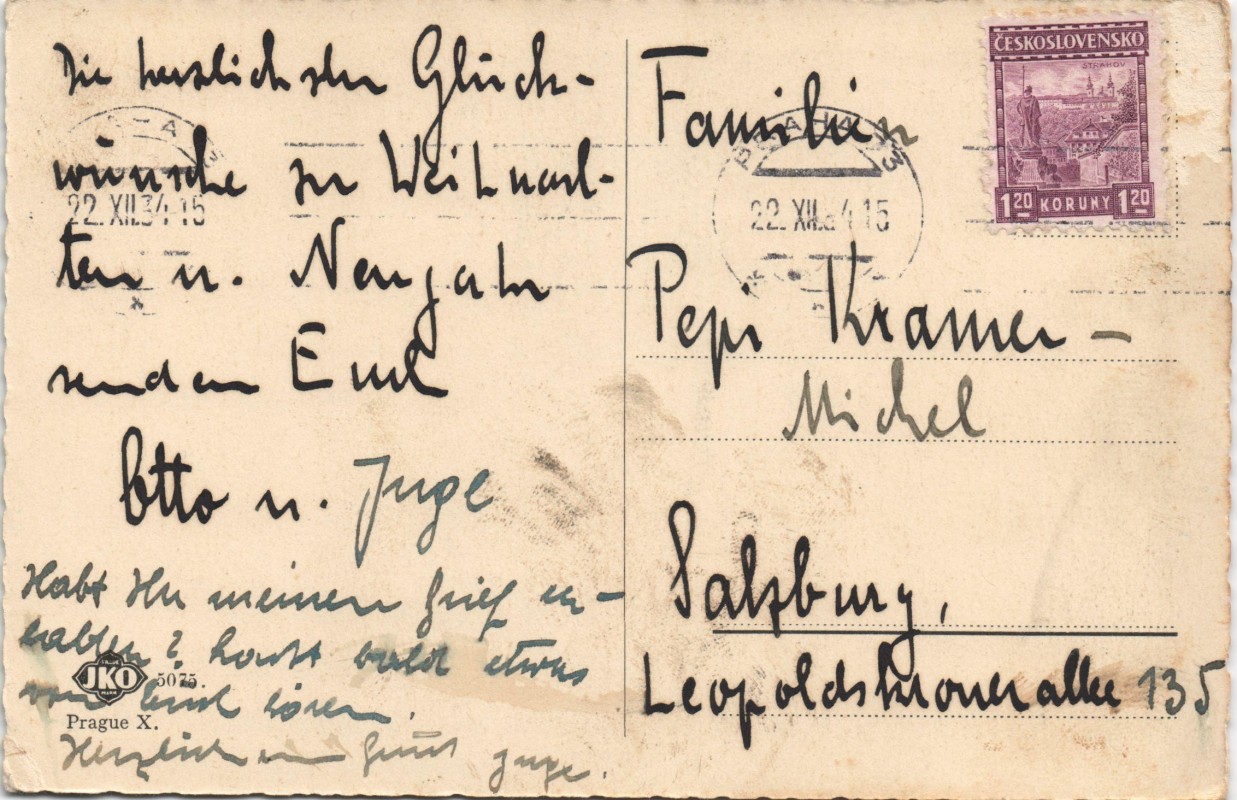 Die herzlichsten Glück-
wünsche zu Weihnach-
ten u. Neujahr
senden Euch
Otto u. Inge
Habt Ihr meinen Brief er-
halten? Lasst bald etwas
von Euch hören.
Herzlichen Gruß Inge.
JKO
5075.
Prague X.
ČESKOSLOVENSKO
STRAHOV
1 20 KORUNY 1 20
22. XII.34-15
PRAHA
22. XII.34-15
Familien
Pepi Kramer –
Michel
Salzburg,
Leopoldskronerallee 135